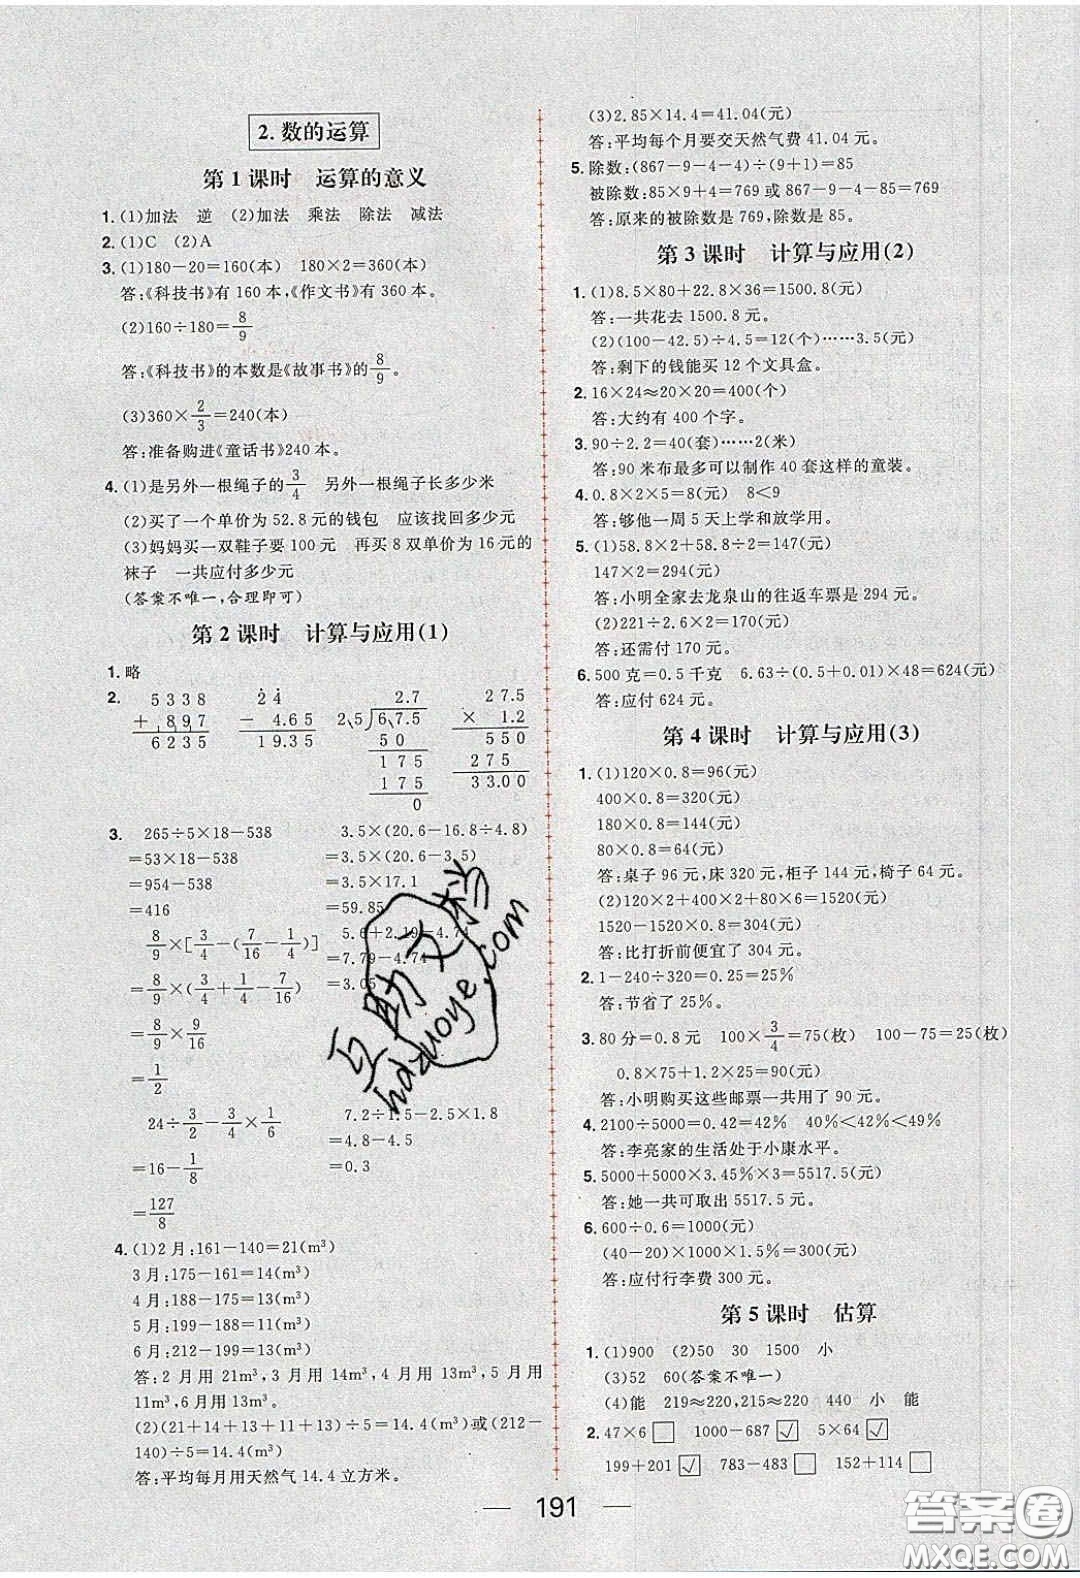 2. 数的运算
第1课时 运算的意义
1. (1)加法 逆 (2)加法 乘法 除法 减法
2. (1)C (2)A
3. (1)180-20=160(本) 180×2=360(本)
答:《科技书》有160本,《作文书》有360本。
(2)160÷180=8/9
答:《科技书》的本数是《故事书》的8/9。
(3)360×2/3=240(本)
答:准备购进《童话书》240本。
4. (1)是另外一根绳子的3/4 另外一根绳子长多少米
(2)买了一个单价为52.8元的钱包 应该找回多少元
(3)妈妈买一双鞋子要100元 再买8双单价为16元的
袜子 一共应付多少元
(答案不唯一,合理即可)
第2课时 计算与应用(1)
1. 略
2. 5338 + 897 = 6235
24 - 4.65 = 19.35
25)67.5 2.7 50 175 175 0
27.5 × 1.2 550 275 33.00
3. 265÷5×18-538
=53×18-538
=954-538
=416
3.5×(20.6-16.8÷4.8)
=3.5×(20.6-3.5)
=3.5×17.1
=59.85
8/9×[3/4-(7/16-1/4)]
=8/9×(3/4+1/4-7/16)
=8/9×9/16
=1/2
5.6+2.19-4.74
=7.79-4.74
=3.05
24÷3/2-3/4×1/6
=16-1/8
=127/8
7.2÷1.5-2.5×1.8
=4.8-4.5
=0.3
4. (1)2月:161-140=21(m³)
3月:175-161=14(m³)
4月:188-175=13(m³)
5月:199-188=11(m³)
6月:212-199=13(m³)
答:2月用21m³,3月用14m³,4月用13m³,5月用
11m³,6月用13m³。
(2)(21+14+13+11+13)÷5=14.4(m³)或(212-
140)÷5=14.4(m³)
答:平均每月用天然气14.4立方米。
(3)2.85×14.4=41.04(元)
答:平均每个月要交天然气费41.04元。
5. 除数:(867-9-4-4)÷(9+1)=85
被除数:85×9+4=769或867-9-4-85=769
答:原来的被除数是769,除数是85。
第3课时 计算与应用(2)
1. (1)8.5×80+22.8×36=1500.8(元)
答:一共花去1500.8元。
(2)(100-42.5)÷4.5=12(个)……3.5(元)
答:剩下的钱能买12个文具盒。
2. 16×24≈20×20=400(个)
答:大约有400个字。
3. 90÷2.2=40(套)……2(米)
答:90米布最多可以制作40套这样的童装。
4. 0.8×2×5=8(元) 8<9
答:够他一周5天上学和放学用。
5. (1)58.8×2+58.8÷2=147(元)
147×2=294(元)
答:小明全家去龙泉山的往返车票是294元。
(2)221÷2.6×2=170(元)
答:还需付170元。
6. 500克=0.5千克 6.63÷(0.5+0.01)×48=624(元)
答:应付624元。
第4课时 计算与应用(3)
1. (1)120×0.8=96(元)
400×0.8=320(元)
180×0.8=144(元)
80×0.8=64(元)
答:桌子96元,床320元,柜子144元,椅子64元。
(2)120×2+400×2+180+80×2=1520(元)
1520-1520×0.8=304(元)
答:比打折前便宜了304元。
2. 1-240÷320=0.25=25%
答:节省了25%。
3. 80分=0.8元 100×3/4=75(枚) 100-75=25(枚)
0.8×75+1.2×25=90(元)
答:小明购买这些邮票一共用了90元。
4. 2100÷5000=0.42=42% 40%<42%<49%
答:李亮家的生活处于小康水平。
5. 5000+5000×3.45%×3=5517.5(元)
答:她一共可取出5517.5元。
6. 600÷0.6=1000(元)
(40-20)×1000×1.5%=300(元)
答:应付行李费300元。
第5课时 估算
1. (1)900 (2)50 30 1500 小
(3)52 60(答案不唯一)
(4)能 219≈220,215≈220 440 小 能
2. 47×6□ 1000-687☑ 5×64☑
199+201☑ 783-483□ 152+114□
191
互助文档
hdzuoye.com
答案圈
MXQE.COM